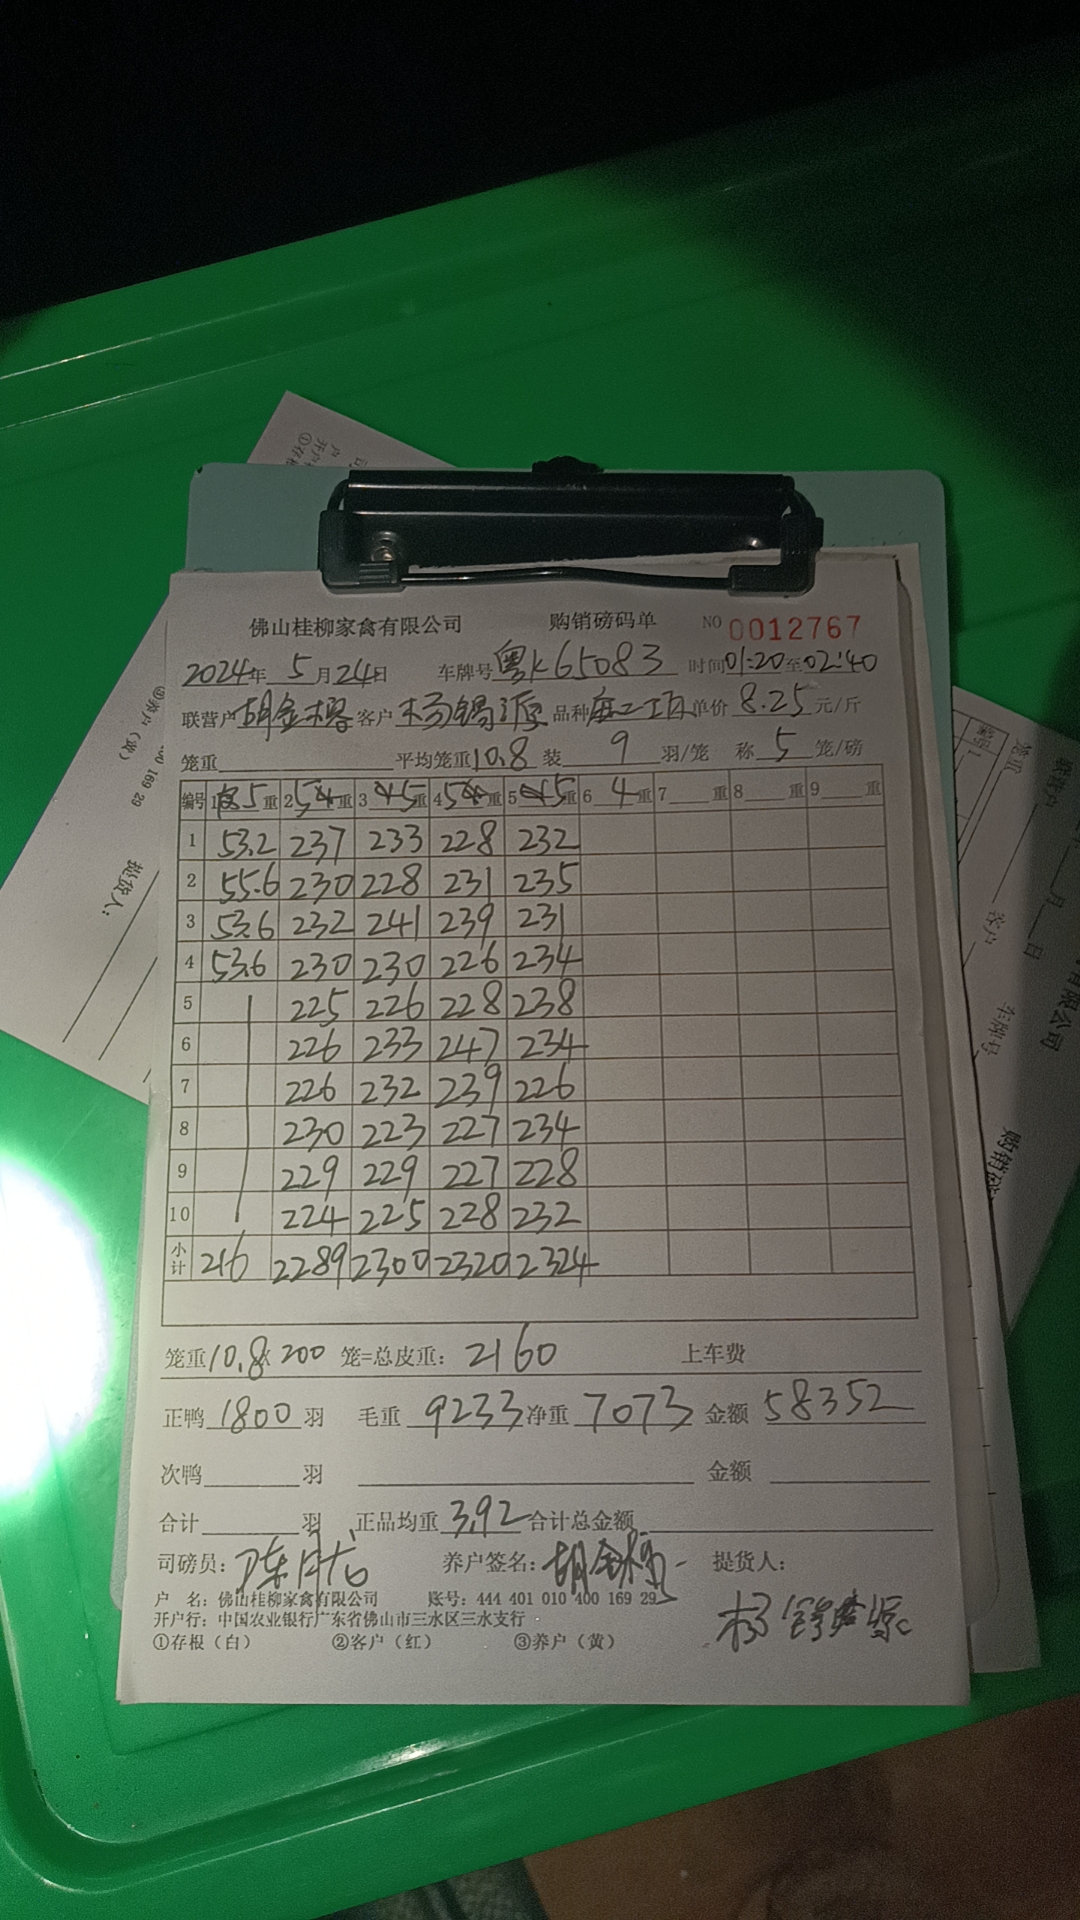 佛山桂柳家禽有限公司 购销磅码单 NO 0012767
2024年 5月24日 车牌号 粤K65083 时间01:20至02:40
联营户 胡金 客户 杨锡源 品种 麻二 单价 8.25 元/斤
笼重 平均笼重10.8 装 9 羽/笼 称 5 笼/磅
编号 1 5 重 2 5 重 3 5 重 4 5 重 5 5 重 6 4 重 7 重 8 重 9 重
1 53.2 237 233 228 232
2 55.6 230 228 231 235
3 53.6 232 241 239 231
4 53.6 230 230 226 234
5 225 226 228 238
6 226 233 247 234
7 226 232 239 226
8 230 223 227 234
9 229 229 227 228
10 224 225 228 232
小计 216 2289 2300 2320 2324
笼重10.8X 200 笼=总皮重: 2160 上车费
正鸭 1800 羽 毛重 9233 净重 7073 金额 58352
次鸭 羽 金额
合计 羽 正品均重 3.92 合计总金额
司磅员: 陈 养户签名: 胡金 提货人:
户 名: 佛山桂柳家禽有限公司 账号: 444 401 010 400 169 29
开户行: 中国农业银行广东省佛山市三水区三水支行
①存根(白) ②客户(红) ③养户(黄)
杨
③养户(黄)
00 169 29
提货人:
客户
车牌号
有限公司
月 日
笼重